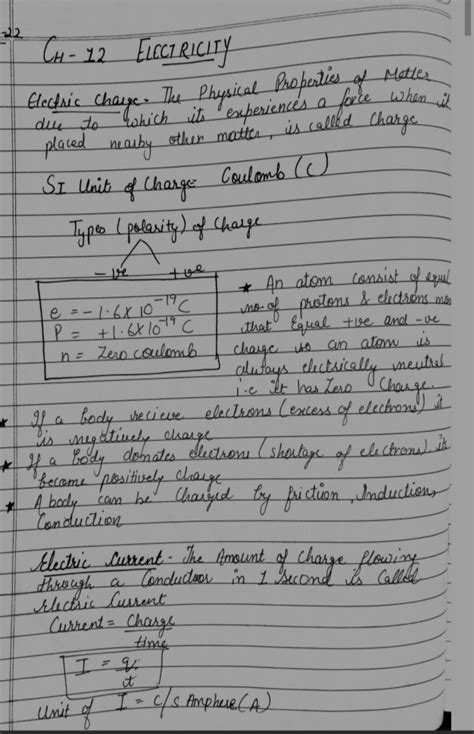 -22
CH-12 ELECTRICITY
Electric Charge - The Physical Properties of Matter
due to which its experiences a force when it
placed nearby other matter, is called Charge
SI Unit of Charge Coulomb (C)
Types (polarity) of Charge
-ve +ve
e = -1.6X10⁻¹⁹ C
P = +1.6X10⁻¹⁹ C
n = Zero coulomb
* An atom consist of equal
no. of protons & electrons
that Equal +ve and -ve
charge so an atom is
always electrically neutral
i.e It has Zero Charge.
* If a body recieve electrons (excess of electrons) it
is negatively charge
* If a body donates electrons (shortage of electrons) it
become positively charge
* A body can be Charged by friction, Induction,
Conduction
Electric Current - The Amount of Charge flowing
through a Conductor in 1 second is Called
Electric Current
Current = Charge
time
I = q
t
Unit of I = C/s Amphere (A)